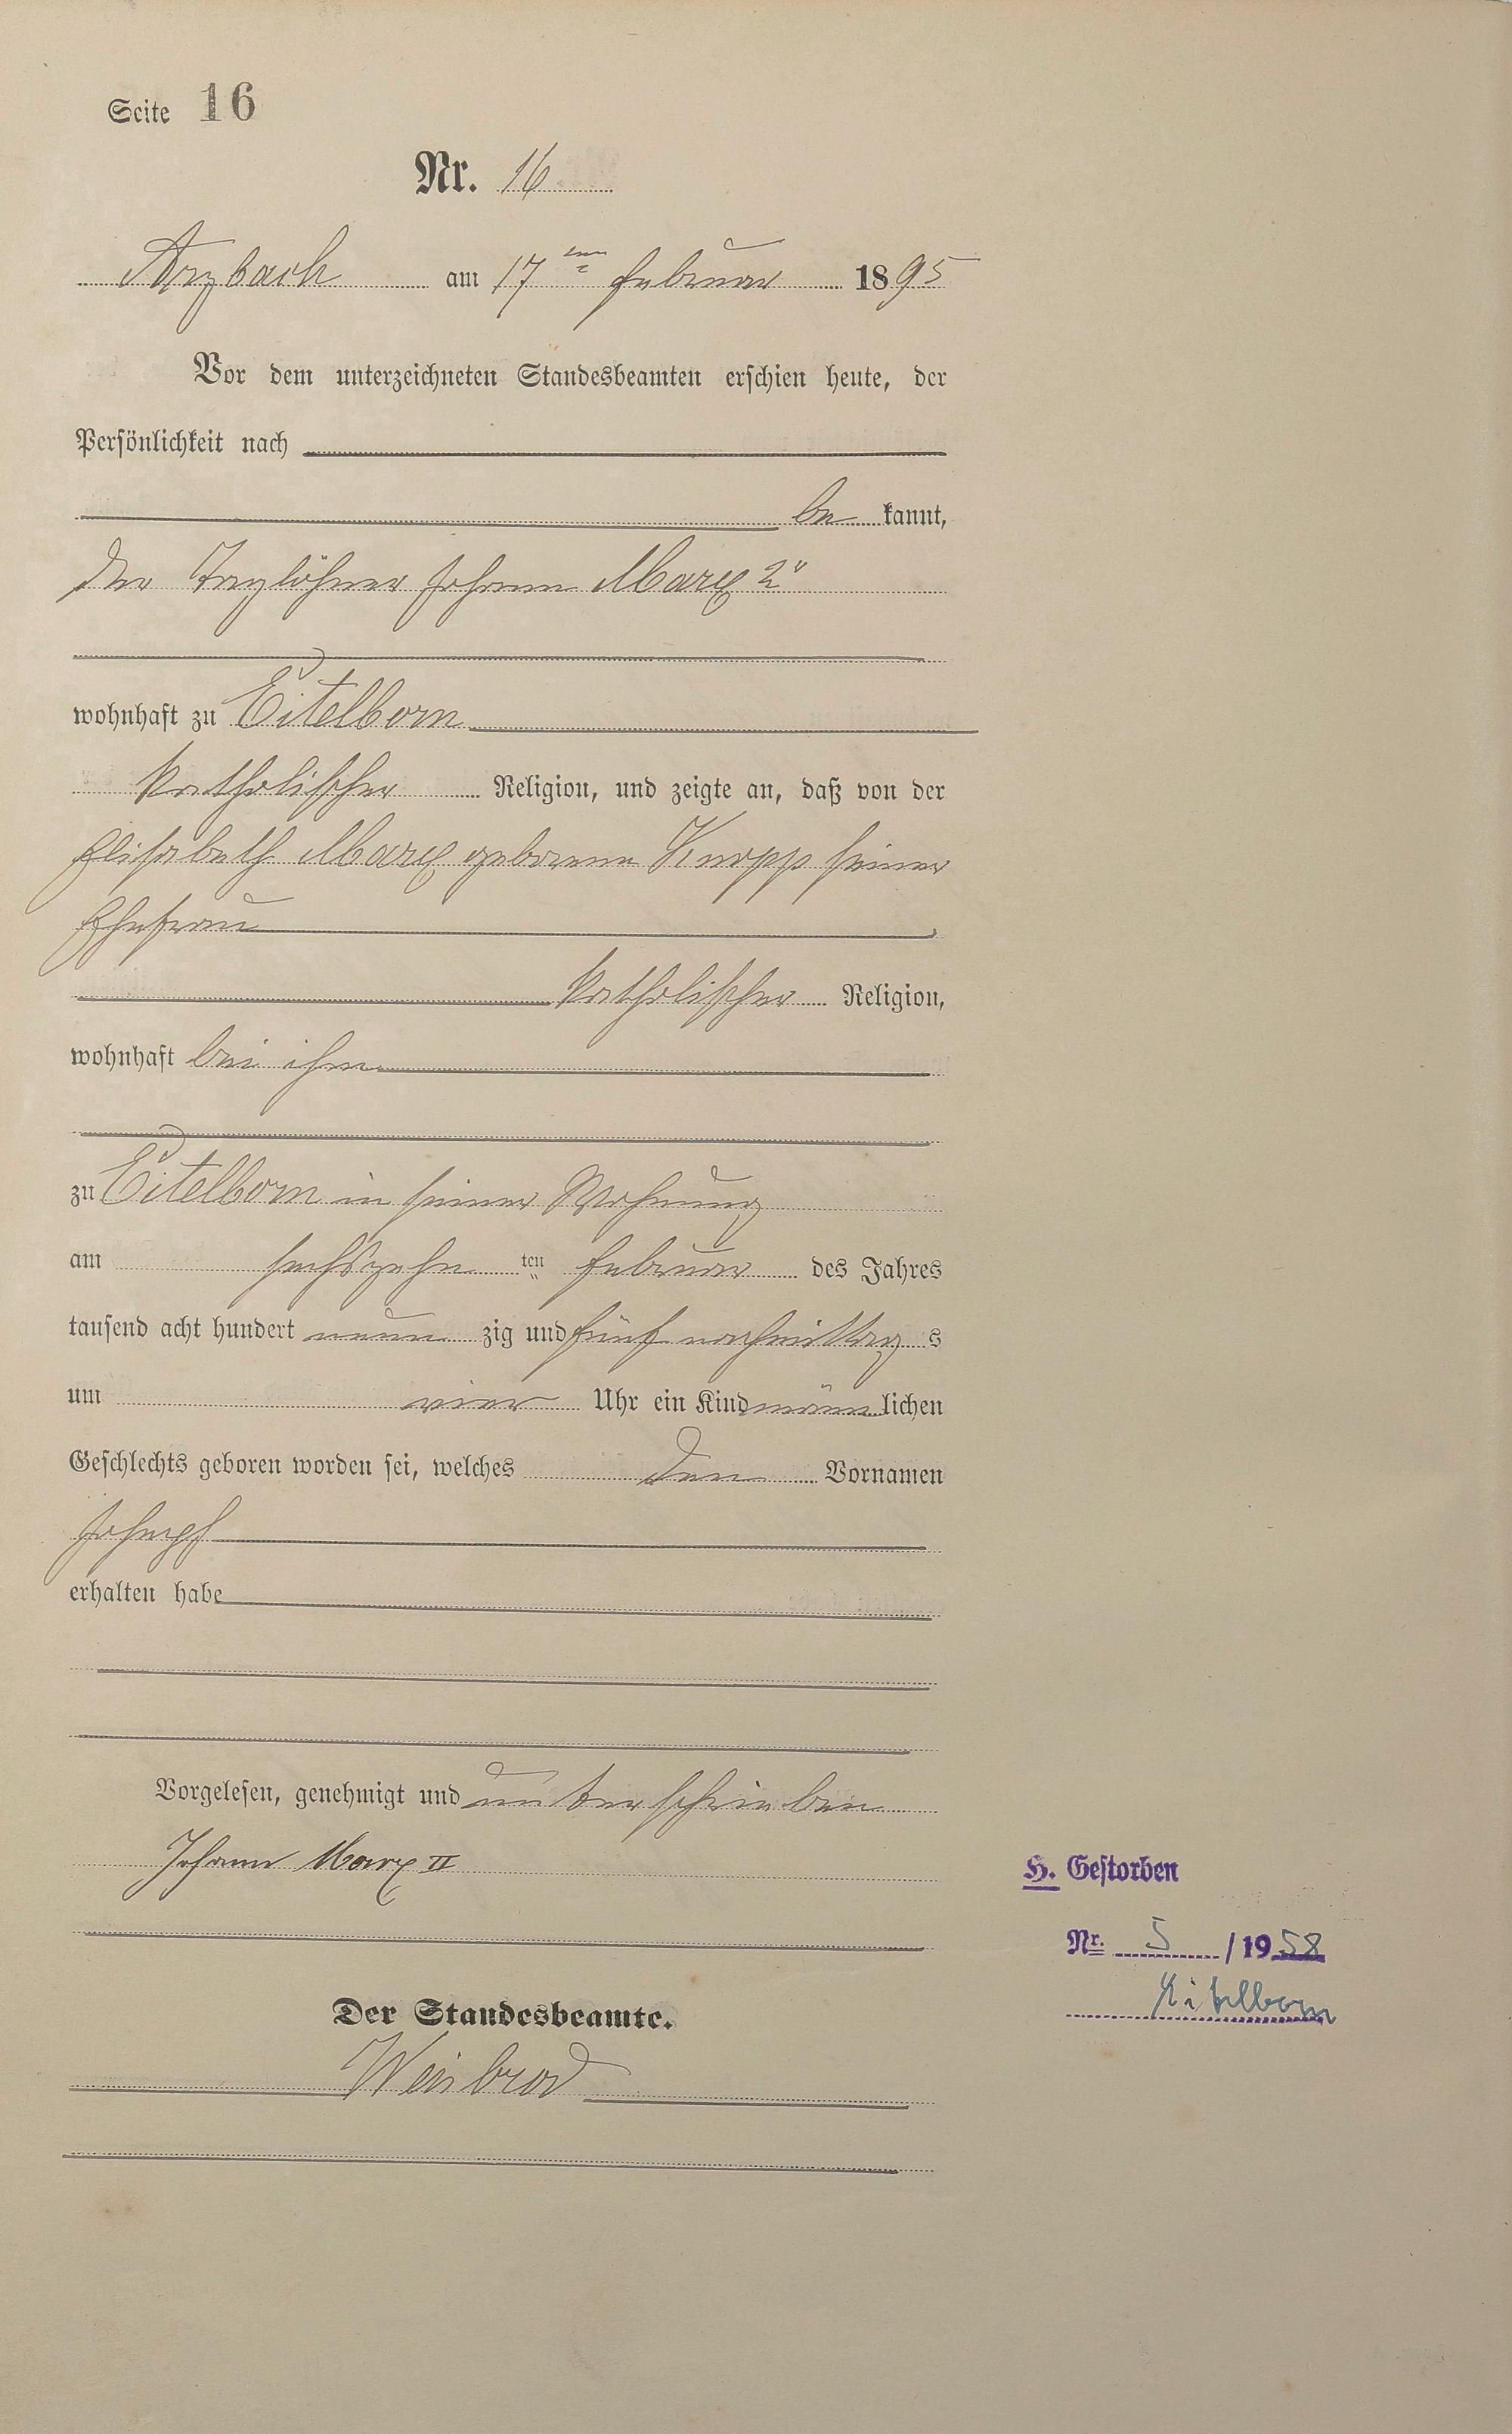 Seite 16
Nr. 16
Arzbach am 17ten Februar 1895
Vor dem unterzeichneten Standesbeamten erschien heute, der
Persönlichkeit nach
be kannt,
der Taglöhner Johann Marx 2r
wohnhaft zu Eitelborn
katholischer Religion, und zeigte an, daß von der
Elisabeth Marx geborene Knopp seiner
Ehefrau
katholischer Religion,
wohnhaft bei ihm
zu Eitelborn in seiner Wohnung
am sechszehn ten Februar des Jahres
tausend acht hundert neun zig und fünf nachmittag s
um vier Uhr ein Kind männ lichen
Geschlechts geboren worden sei, welches den Vornamen
Joseph
erhalten habe
Vorgelesen, genehmigt und unterschrieben
Johann Marx II
Der Standesbeamte.
Weisbrod
H. Gestorben
Nr. 5 / 1958
Eitelborn